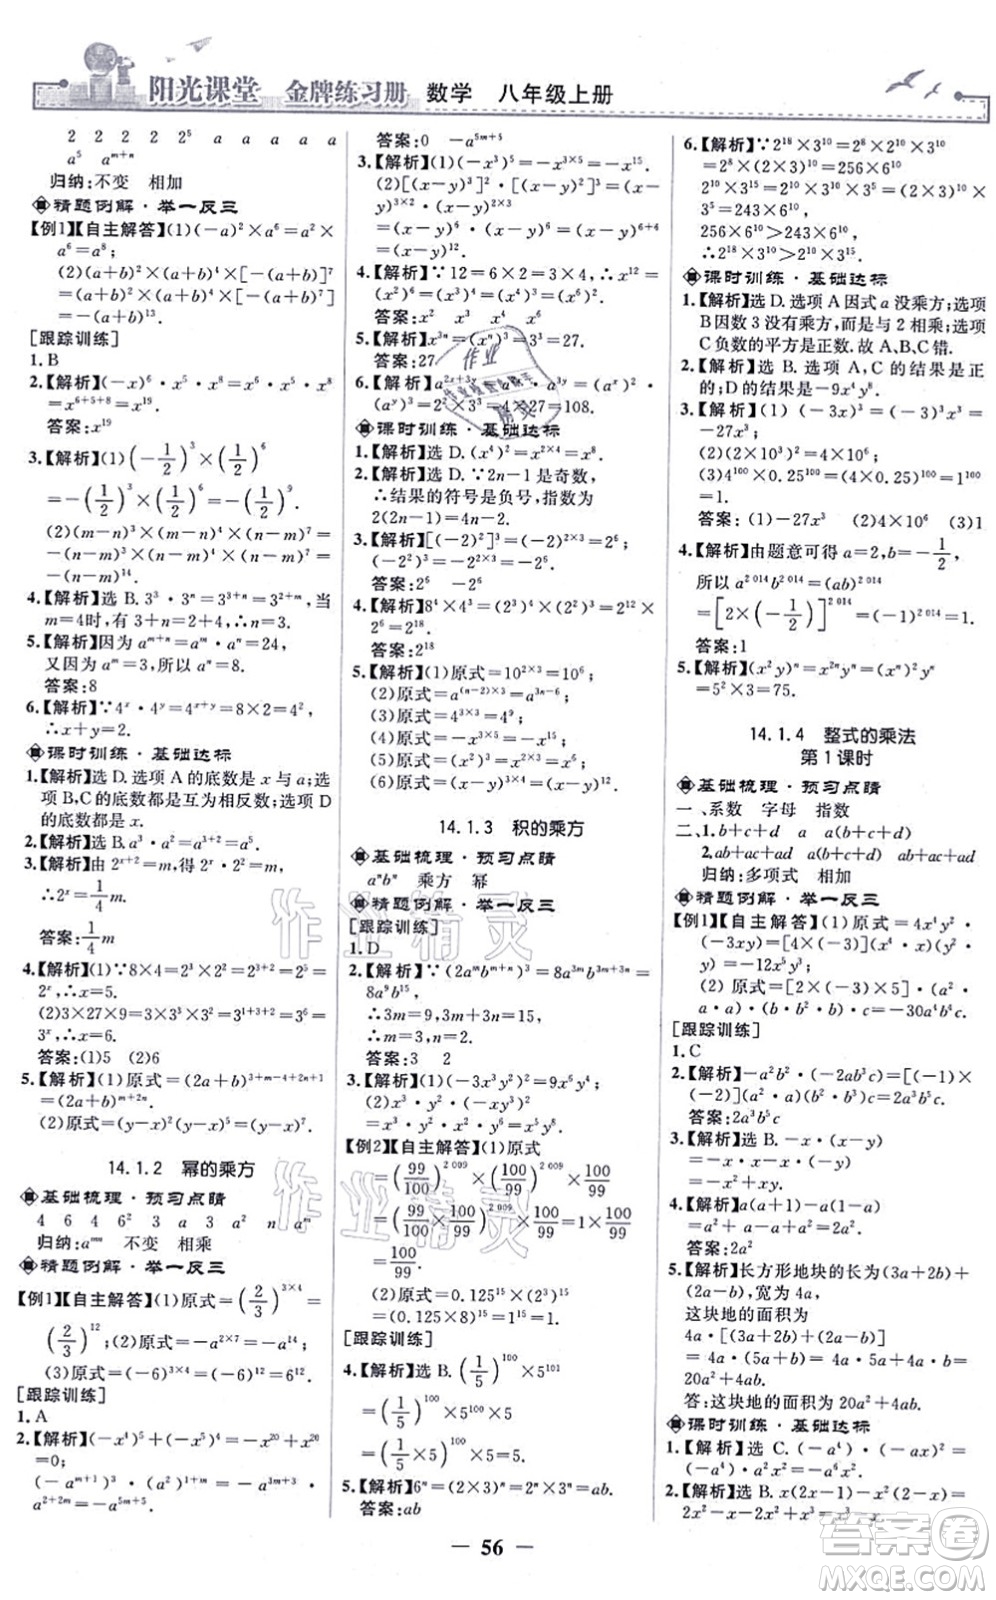 阳光课堂 金牌练习册 数学 八年级上册
2 2 2 2 2⁵ a a a a a
a⁵ aᵐ⁺ⁿ
归纳:不变 相加
精题例解·举一反三
【例1】【自主解答】(1)(-a)²×a⁶=a²×
a⁶=a⁸;
(2)(a+b)²×(a+b)⁴×[-(a+b)⁷]
=(a+b)²×(a+b)⁴×[-(a+b)⁷]=
-(a+b)¹³.
[跟踪训练]
1. B
2.【解析】(-x)⁶·x⁵·x⁸=x⁶·x⁵·x⁸
=x⁶⁺⁵⁺⁸=x¹⁹
答案:x¹⁹
3.【解析】(1)(-1/2)³×(1/2)⁶
=-(1/2)³×(1/2)⁶=-(1/2)⁹
(2)(m-n)³×(m-n)⁴×(m-n)⁷=
-(m-n)³×(m-n)⁴×(m-n)⁷=
-(m-n)¹⁴.
4.【解析】选 B.3³·3ⁿ=3³⁺ⁿ=3ᵐ,当
m=4时,有 3+n=2+4,∴n=3.
5.【解析】因为 aᵐ⁺ⁿ=aᵐ·aⁿ=24,
又因为 aᵐ=3,所以 aⁿ=8.
答案:8
6.【解析】∵4ˣ·4ʸ=4ˣ⁺ʸ=8×2=4²,
∴x+y=2.
课时训练·基础达标
1.【解析】选 D.选项 A 的底数是 x 与 a;选
项 B,C 的底数是互为相反数;选项 D
的底数都是 x.
2.【解析】选 B.a³·a²=a³⁺²=a⁵.
3.【解析】由 2ˣ⁺²=m,得 2ˣ×2²=m,
∴2ˣ=1/4 m.
答案:1/4 m
4.【解析】(1)∵8×4=2³×2²=2³⁺²=
2ˣ,∴x=5.
(2)3×27×9=3×3³×3²=3¹⁺³⁺²=
3ˣ,∴x=6.
答案:(1)5 (2)6
5.【解析】(1)原式=(2a+b)³⁺ᵐ⁻⁴⁺²ⁿ⁺¹
=(2a+b)ᵐ⁺²ⁿ.
(2)原式=(y-x)²(y-x)=(y-x)³.
14.1.2 幂的乘方
基础梳理·预习点睛
4 6 4 6² 3 a 3 a² n aᵐ
归纳:aᵐⁿ 不变 相乘
精题例解·举一反三
【例1】【自主解答】(1)原式=(2/3)³ˣ⁴=
(2/3)¹²;(2)原式=-a²ˣ⁷=-a¹⁴;
(3)原式=(-6)³ˣ⁴=(-6)¹²=6¹².
[跟踪训练]
1. A
2.【解析】(-x⁴)⁵+(-x⁵)⁴=-x²⁰+x²⁰
=0;
(-aᵐ⁺¹)³·(a²)¹⁺ᵐ=-a³ᵐ⁺³·
a²⁺²ᵐ=-a⁵ᵐ⁺⁵.
答案:0 -a⁵ᵐ⁺⁵
3.【解析】(1)(-x³)⁵=-x³ˣ⁵=-x¹⁵.
(2)[(x-y)³]²·[(x-y)²]³=(x-
y)³ˣ²·(x-y)²ˣ³
=(x-y)⁶·(x-y)⁶=(x-y)⁶⁺⁶
=(x-y)¹².
4.【解析】∵12=6×2=3×4,∴x¹²=
(x²)⁶=(x³)⁴=(x⁴)³.
答案:x² x³ x⁴
5.【解析】x³ⁿ=(xⁿ)³=3³=27.
答案:27
6.【解析】a²ˣ⁺³ʸ=a²ˣ·a³ʸ=(aˣ)²·
(aʸ)³=2²×3³=4×27=108.
课时训练·基础达标
1.【解析】选 D.(x⁴)²=x⁴ˣ²=x⁸.
2.【解析】选 D.∵2n-1是奇数,
∴结果的符号是负号,指数为
2(2n-1)=4n-2.
3.【解析】[(-2)²]³=(-2)²ˣ³=2⁶,
(-2²)³=-2²ˣ³=-2⁶.
答案:2⁶ -2⁶
4.【解析】8⁴×4³=(2³)⁴×(2²)³=2¹²×
2⁶=2¹⁸.
答案:2¹⁸
5.【解析】(1)原式=10²ˣ³=10⁶;
(2)原式=a⁽ⁿ⁻²⁾ˣ³=a³ⁿ⁻⁶;
(3)原式=-4³ˣ⁷=-4²¹;
(4)原式=-x³ˣ⁹=-x²⁷;
(5)原式=(x²)³=x²ˣ³=x⁶;
(6)原式=(x-y)ⁿˣ³=(x-y)³ⁿ.
14.1.3 积的乘方
基础梳理·预习点睛
aⁿbⁿ 乘方 幂
精题例解·举一反三
[跟踪训练]
1. D
2.【解析】∵(2aᵐbᵐ⁺ⁿ)³=8a³ᵐb³ᵐ⁺³ⁿ=
8a⁹b¹⁵,
∴3m=9,3m+3n=15,
∴m=3,n=2.
答案:3 2
3.【解析】(1)(-3x³)²=9x⁶.
(2)x³·y³·(x²·y²)=x³·x²·y³·
y²=x⁵y⁵.
【例2】【自主解答】(1)原式
=(99/100)²⁰⁰⁹×(100/99)²⁰⁰⁹×100/99
=(99/100×100/99)²⁰⁰⁹×100/99=1×100/99=
100/99.
(2)原式=0.125¹⁵×(2³)¹⁵
=(0.125×8)¹⁵=1¹⁵=1.
[跟踪训练]
4.【解析】选 B.(1/5)¹⁰⁰×5¹⁰¹
=(1/5)¹⁰⁰×5¹⁰⁰×5
=(1/5×5)¹⁰⁰×5=5.
5.【解析】6ⁿ=(2×3)ⁿ=2ⁿ×3ⁿ=ab.
答案:ab
6.【解析】∵2¹⁸×3¹⁰=2⁸×2¹⁰×3¹⁰
=2⁸×(2×3)¹⁰=256×6¹⁰
2¹⁰×3¹⁵=2¹⁰×3¹⁰×3⁵
=3⁵×6¹⁰=243×6¹⁰,
256×6¹⁰>243×6¹⁰,
∴2¹⁸×3¹⁰>2¹⁰×3¹⁵.
课时训练·基础达标
1.【解析】选 D.选项 A因式 a 没乘方;选项
B因数 3 没有乘方,而是与 2 相乘;选项
C负数的平方是正数.故 A、B、C 错.
2.【解析】选 C.A、B 的结果是不能合并
的;D 的结果是-9x⁴y⁶.
3.【解析】(1)(-3x)³=(-3)³x³=
-27x³.
(2)(2×10³)²=4×10⁶;
(3)4¹⁰⁰×0.25¹⁰⁰=(4×0.25)¹⁰⁰
=1.
答案:(1)-27x³ (2)4×10⁶ (3)1
4.【解析】由题意可得 a=2,b=-1/2,
所以 a²⁰¹⁴b²⁰¹⁴=(ab)²⁰¹⁴
=[2×(-1/2)]²⁰¹⁴=(-1)²⁰¹⁴=1.
答案:1
5.【解析】(x²y)ⁿ=x²ⁿyⁿ=(xⁿ)²yⁿ
=5²×3=75.
14.1.4 整式的乘法
第1课时
基础梳理·预习点睛
一、系数 字母 指数
二、1. b+c+d a a(b+c+d)
2. ab+ac+ad a(b+c+d) ab+ac+ad
归纳:多项式 相加
精题例解·举一反三
【例1】【自主解答】(1)原式=4x⁴y²·
(-3xy)=[4×(-3)](x⁴·x)(y²·
y)=-12x⁵y³.
(2)原式=[5×2×(-3)](a²·a³
·a·a)·(b²·b)·c=-30a⁷b³c.
[跟踪训练]
1. C
2.【解析】-a²b²·(-2abc)=[(-1)×
(-2)](a²·a)(b²·b)c=2a³b³c.
答案:2a³b³c
3.【解析】选 B.-x(x-1)=-x·x+
(-x)·(-1)=-x²+x.
4.【解析】a(a+1)-a(1-a)
=a²+a-a+a²=2a².
答案:2a²
5.【解析】长方形地块的长为(3a+2b)+
(2a-b),宽为 4a,
这块地的面积为
4a·[(3a+2b)+(2a-b)]
=4a·(5a+b)=4a·5a+4a·b
=20a²+4ab.
答:这块地的面积为 20a²+4ab.
课时训练·基础达标
1.【解析】选 C.(-a⁴)·(-a)²=
(-a⁴)·a²=-a⁶.
2.【解析】选 B.x(2x²-x+2)=
2x³-x²+2x.
56
作业精灵
答案卷
MXQE.COM